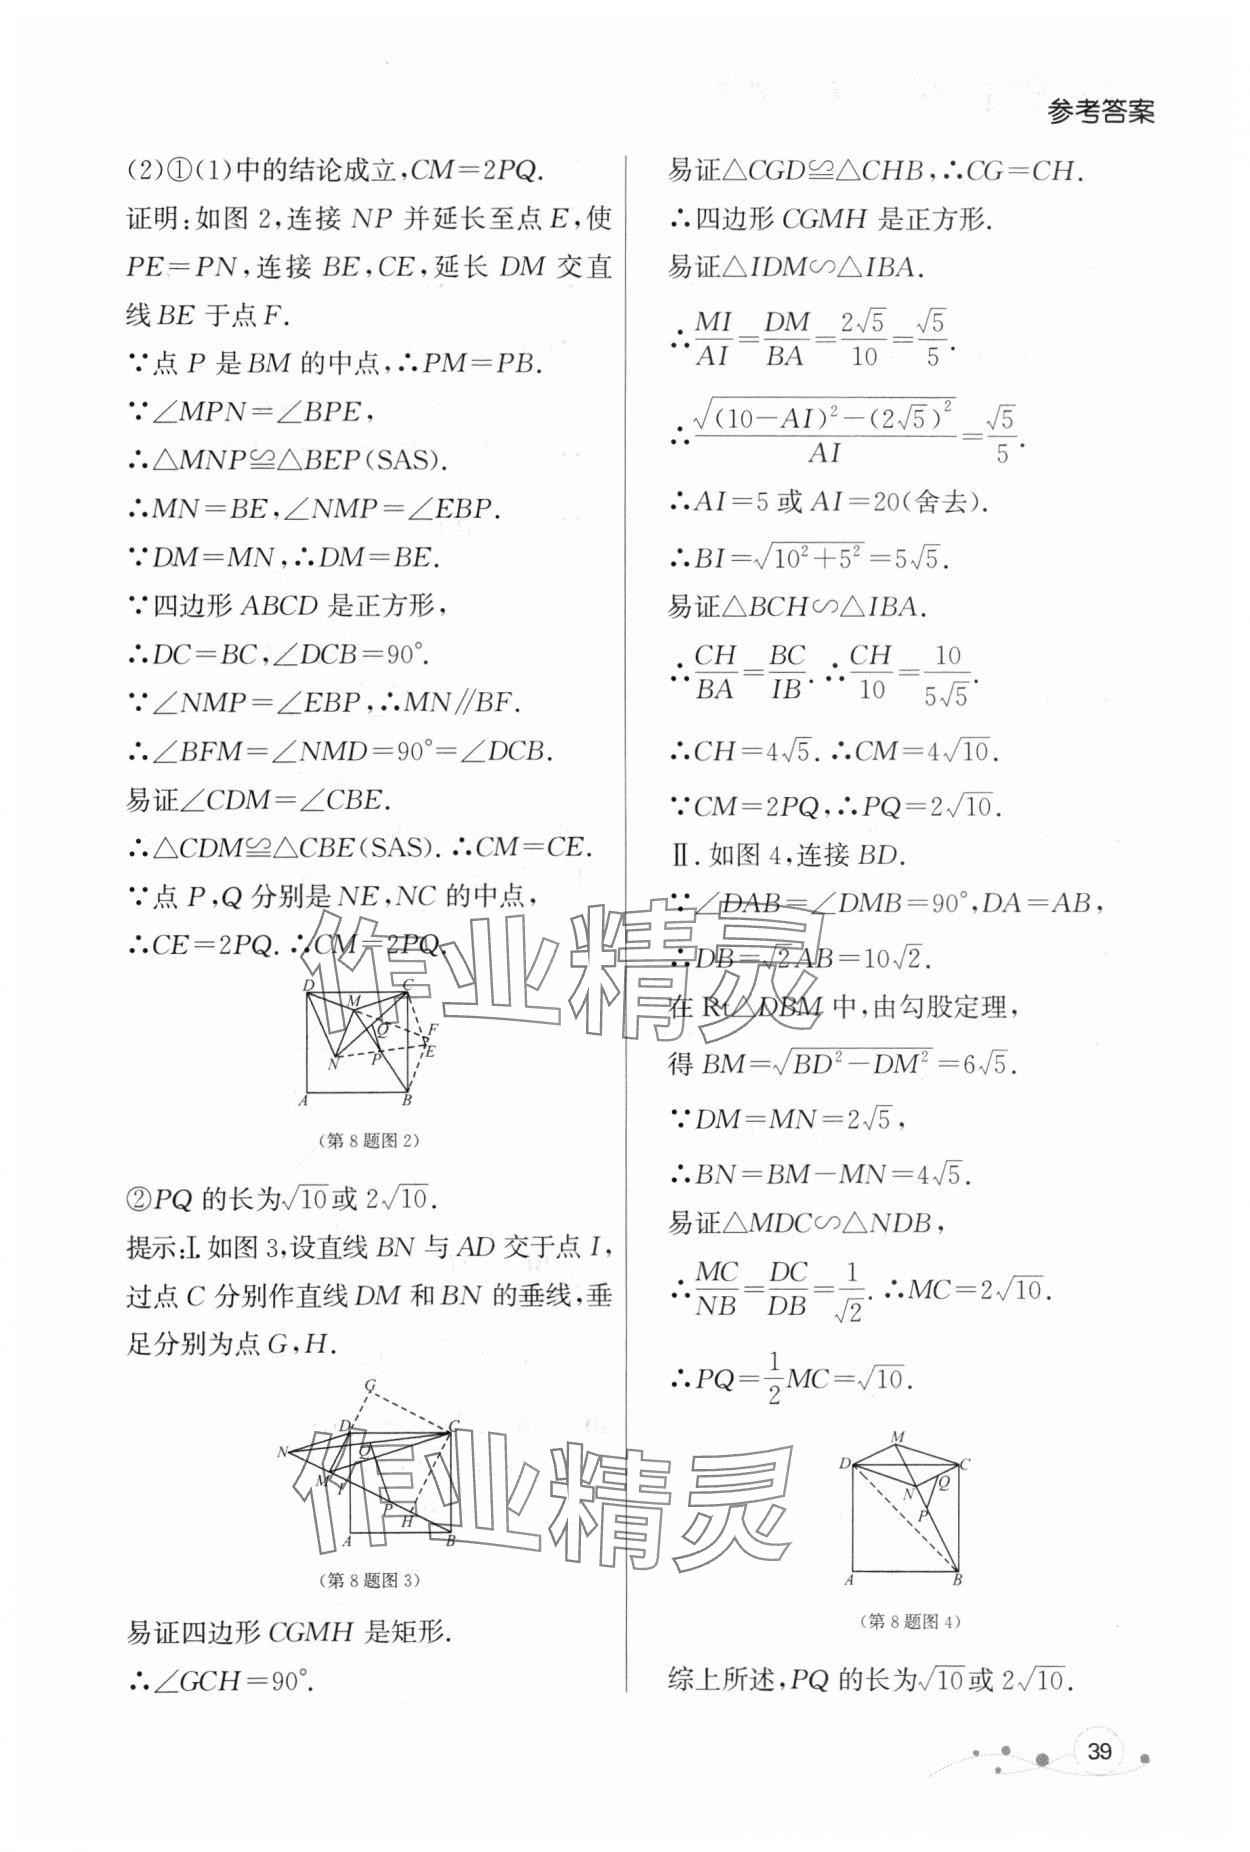 参考答案
(2)①(1)中的结论成立,CM=2PQ.
证明:如图 2,连接 NP 并延长至点 E,使
PE=PN,连接 BE,CE,延长 DM 交直
线 BE 于点 F.
∵点 P 是 BM 的中点,∴PM=PB.
∵∠MPN=∠BPE,
∴△MNP≌△BEP(SAS).
∴MN=BE,∠NMP=∠EBP.
∵DM=MN,∴DM=BE.
∵四边形 ABCD 是正方形,
∴DC=BC,∠DCB=90°.
∵∠NMP=∠EBP,∴MN∥BF.
∴∠BFM=∠NMD=90°=∠DCB.
易证∠CDM=∠CBE.
∴△CDM≌△CBE(SAS).∴CM=CE.
∵点 P,Q 分别是 NE,NC 的中点,
∴CE=2PQ.∴CM=2PQ.
D M C Q F E N P A B
(第 8 题图 2)
②PQ 的长为√10或 2√10.
提示:Ⅰ.如图 3,设直线 BN 与 AD 交于点 I,
过点 C 分别作直线 DM 和 BN 的垂线,垂
足分别为点 G,H.
G D C N Q M I P H A B
(第 8 题图 3)
易证四边形 CGMH 是矩形.
∴∠GCH=90°.
易证△CGD≌△CHB,∴CG=CH.
∴四边形 CGMH 是正方形.
易证△IDM∽△IBA.
∴MI/AI=DM/BA=2√5/10=√5/5.
∴√((10-AI)²-(2√5)²)/AI=√5/5.
∴AI=5 或 AI=20(舍去).
∴BI=√(10²+5²)=5√5.
易证△BCH∽△IBA.
∴CH/BA=BC/IB.∴CH/10=10/5√5.
∴CH=4√5.∴CM=4√10.
∵CM=2PQ,∴PQ=2√10.
Ⅱ.如图 4,连接 BD.
∵∠DAB=∠DMB=90°,DA=AB,
∴DB=√2AB=10√2.
在 Rt△DBM 中,由勾股定理,
得 BM=√(BD²-DM²)=6√5.
∵DM=MN=2√5,
∴BN=BM-MN=4√5.
易证△MDC∽△NDB,
∴MC/NB=DC/DB=1/√2.∴MC=2√10.
∴PQ=1/2MC=√10.
M D C Q N P A B
(第 8 题图 4)
综上所述,PQ 的长为√10或 2√10.
作业精灵
作业精灵
39